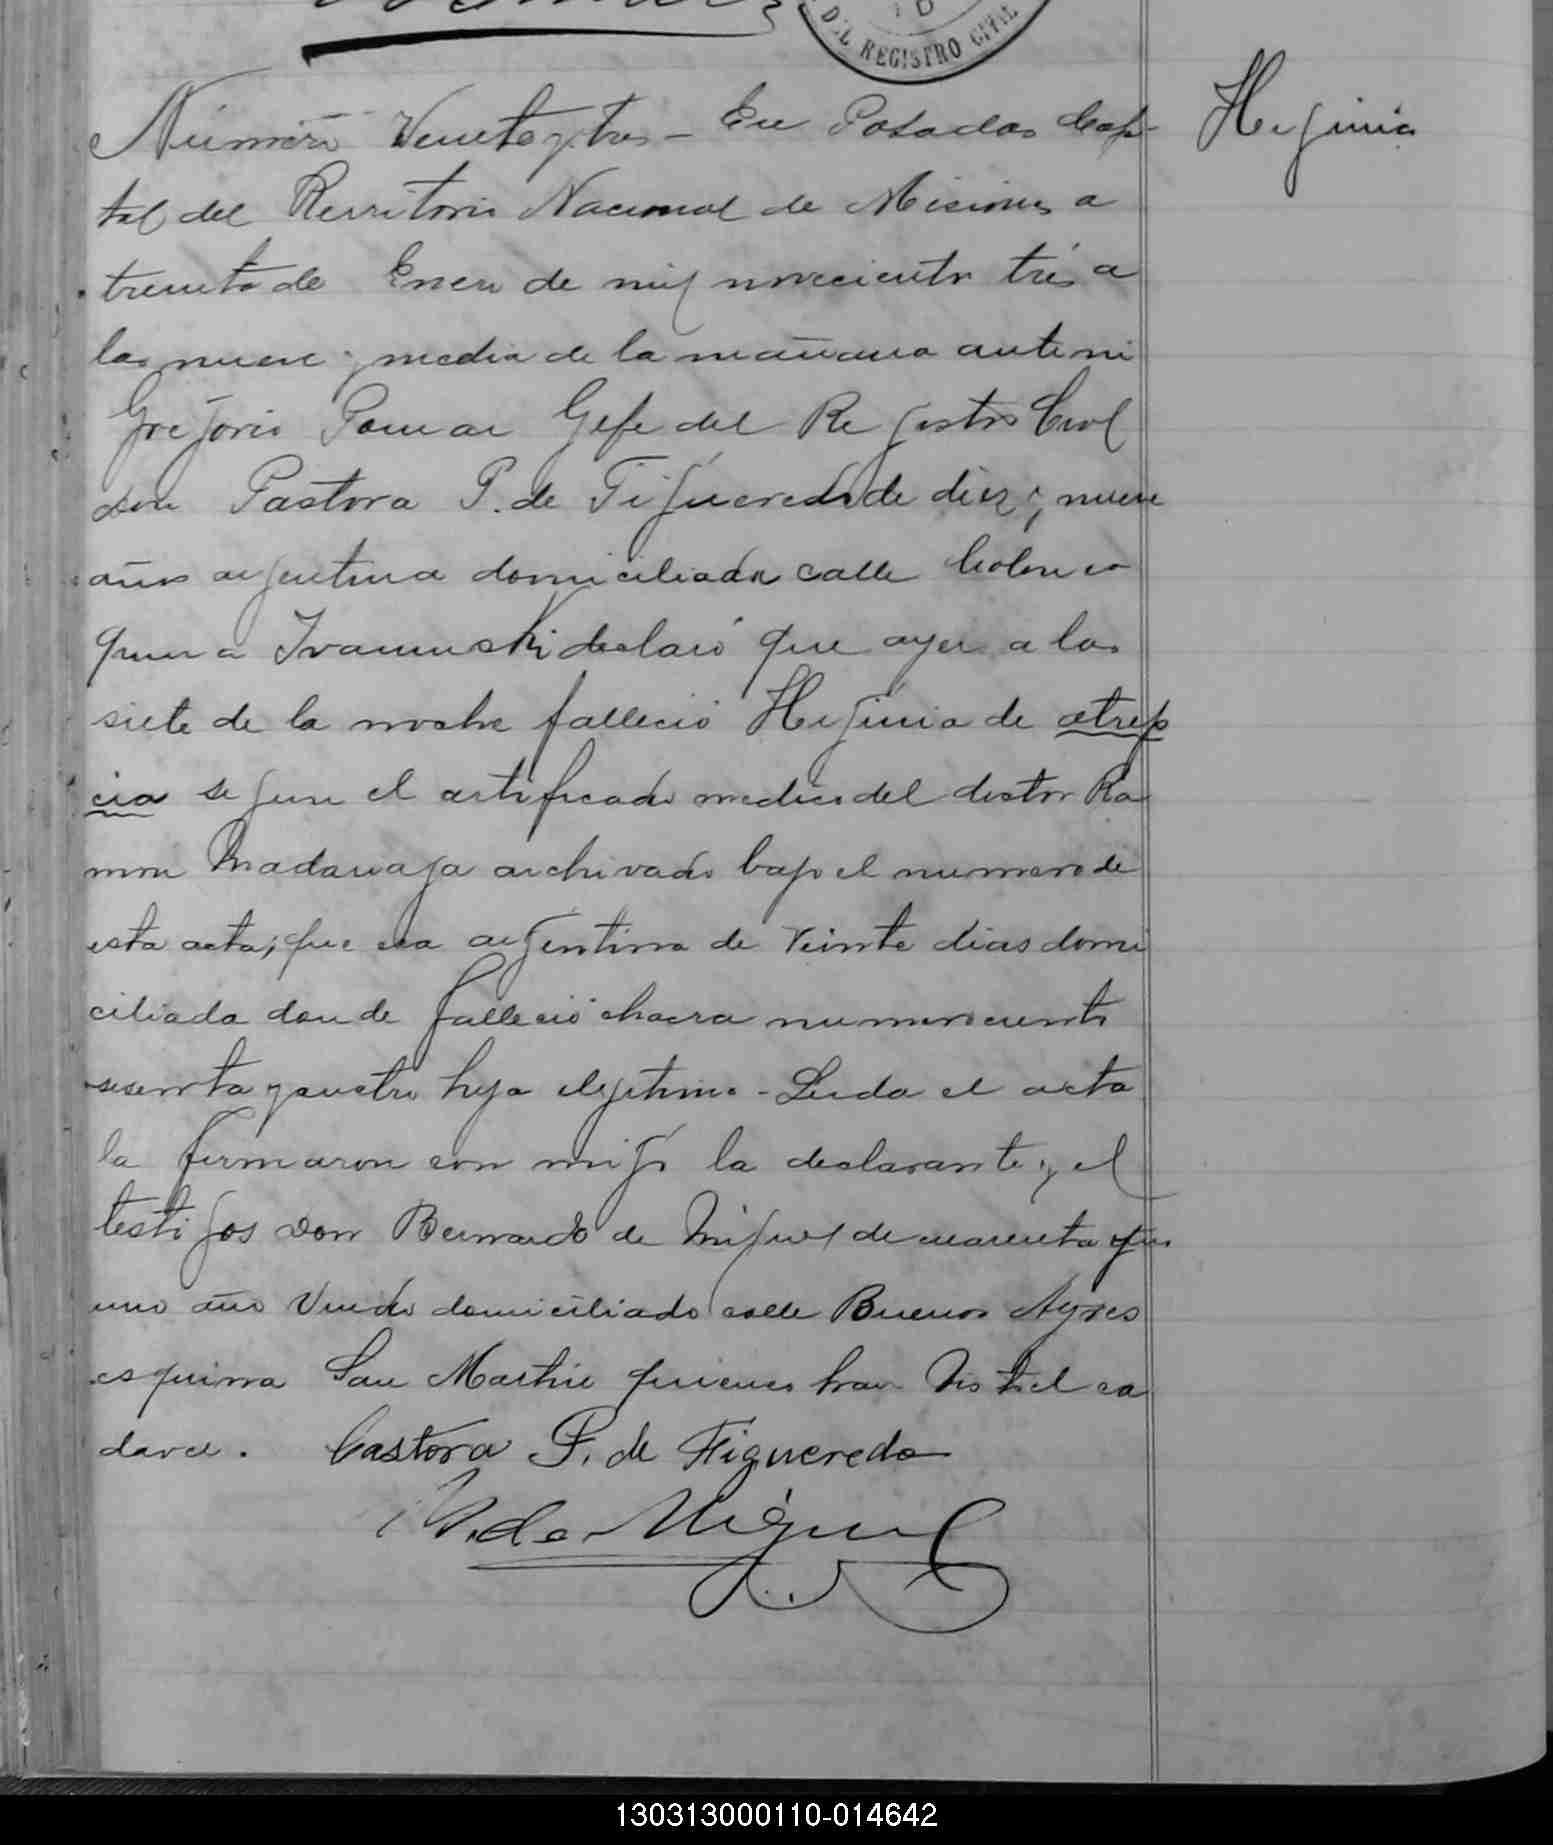 DEL REGISTRO CIVIL
Número Veinte y tres - En Posadas Capi
Hijinia
tal del Rerritorio Nacional de Misiones a
treinta de Enero de mil novecientos trés a
las nueve y media de la mañana ante mi
Gregorio Pomar Gefe del Registro Civil
don Pastora P. de Figueredo de diez y nueve
años argentina domiciliada calle Colon es
quina Ivanuski declaró que ayer a las
siete de la noche falleció Hijinia de atrep
cia segun el certificado medico del doctor Ra
mon Madariaga archivado bajo el numero de
esta acta; que era argentina de veinte dias domi
ciliada donde falleció chacra numero ciento
sesenta y cuatro hija ilegitima - Leida el acta
la firmaron con migo la declarante y el
testigos don Bernardo de Miguel de cuarenta y
uno año viudo domiciliado calle Buenos Ayres
esquina San Martin quienes han visto el ca
daver. Castora P. de Figueredo
B. de Miguel
130313000110-014642